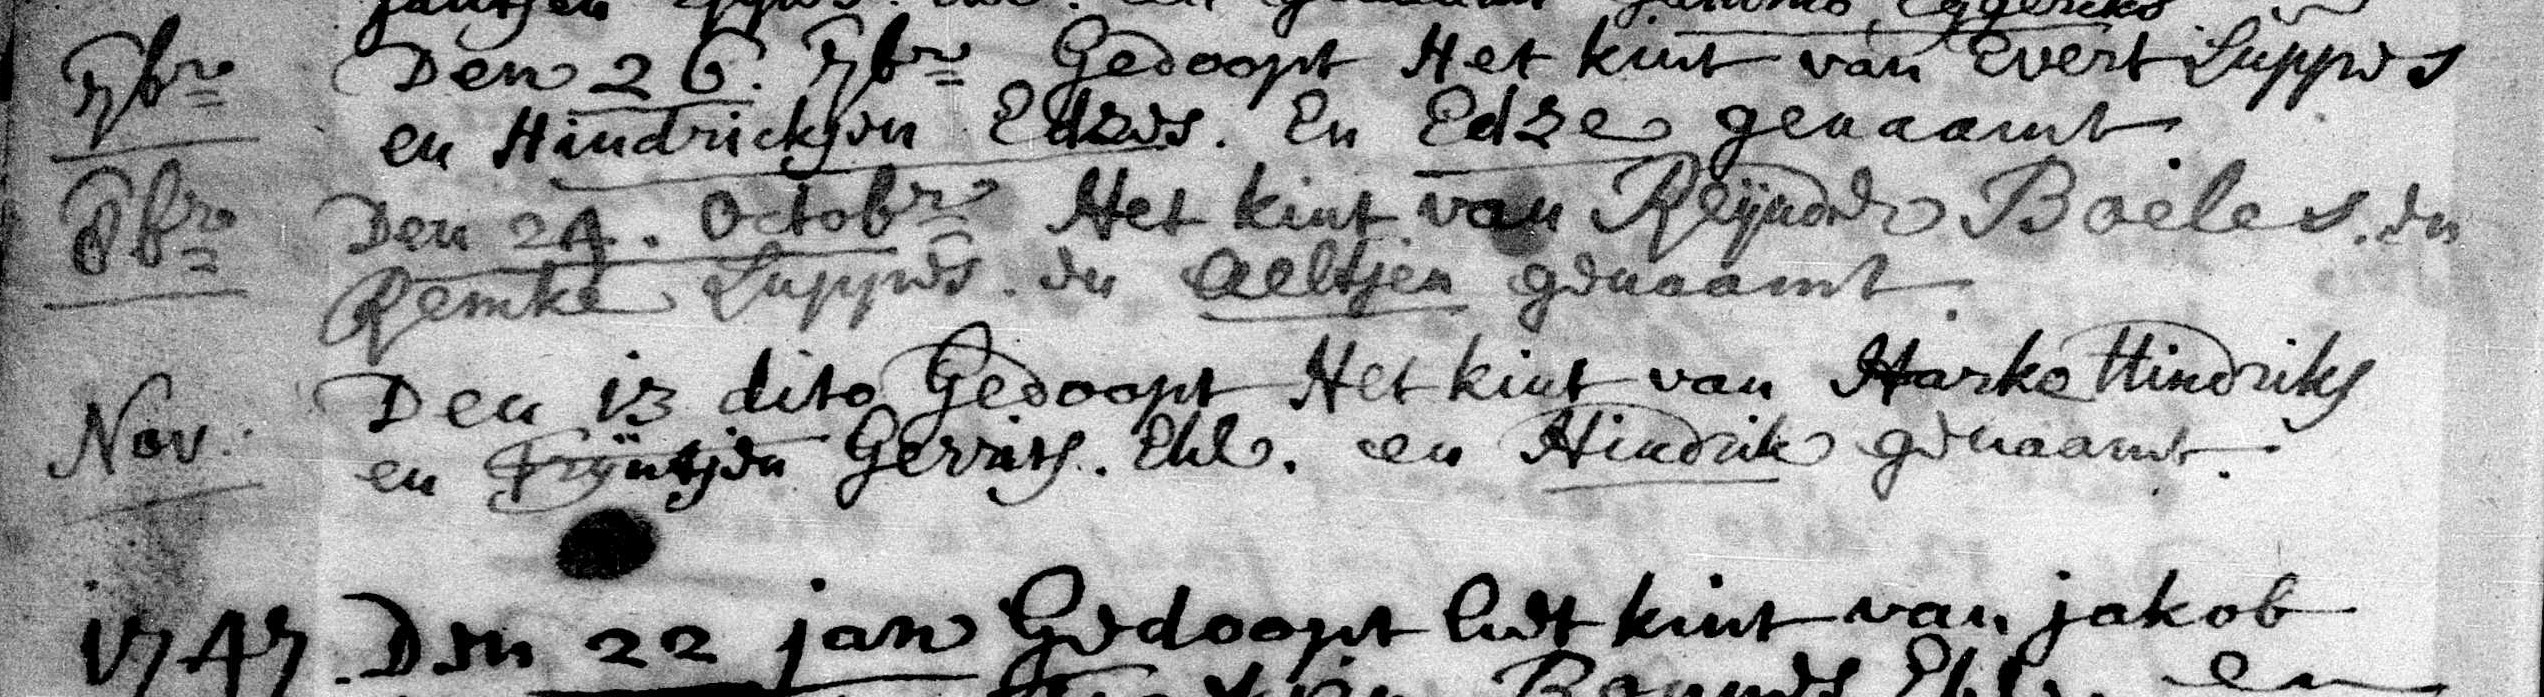 Eggericks
7br Den 26. 7br Gedoopt Het kint van Evert Luppes
en Hindrickjen Edzes. En Edze genaamt
8br Den 24. Octobr Het kint van Reijnder Boeles. en
Remke Luppes. en Aeltjen genaamt.
Nov. Den 13 dito Gedoopt Het kint van Harko Hindriks
en Trÿntjen Gerrits. Ehl. en Hindrik genaamt.
1747. Den 22 jan Gedoopt het kint van jakob
Ehl. en